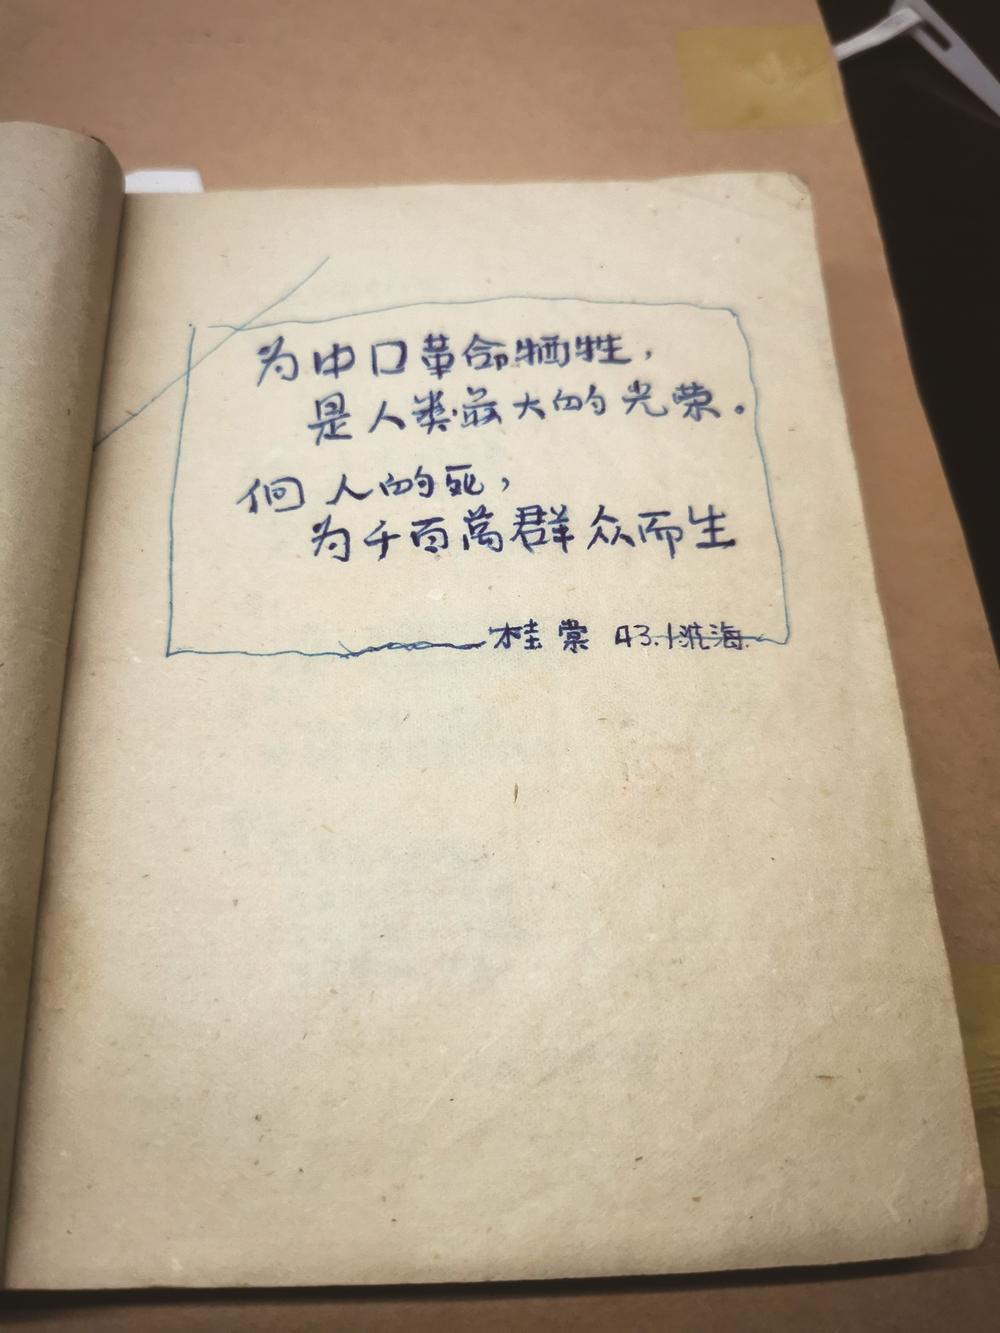 为中口革命牺牲，
是人类最大的光荣。
個人的死，
为千百萬群众而生
桂棠 43.1淮海.